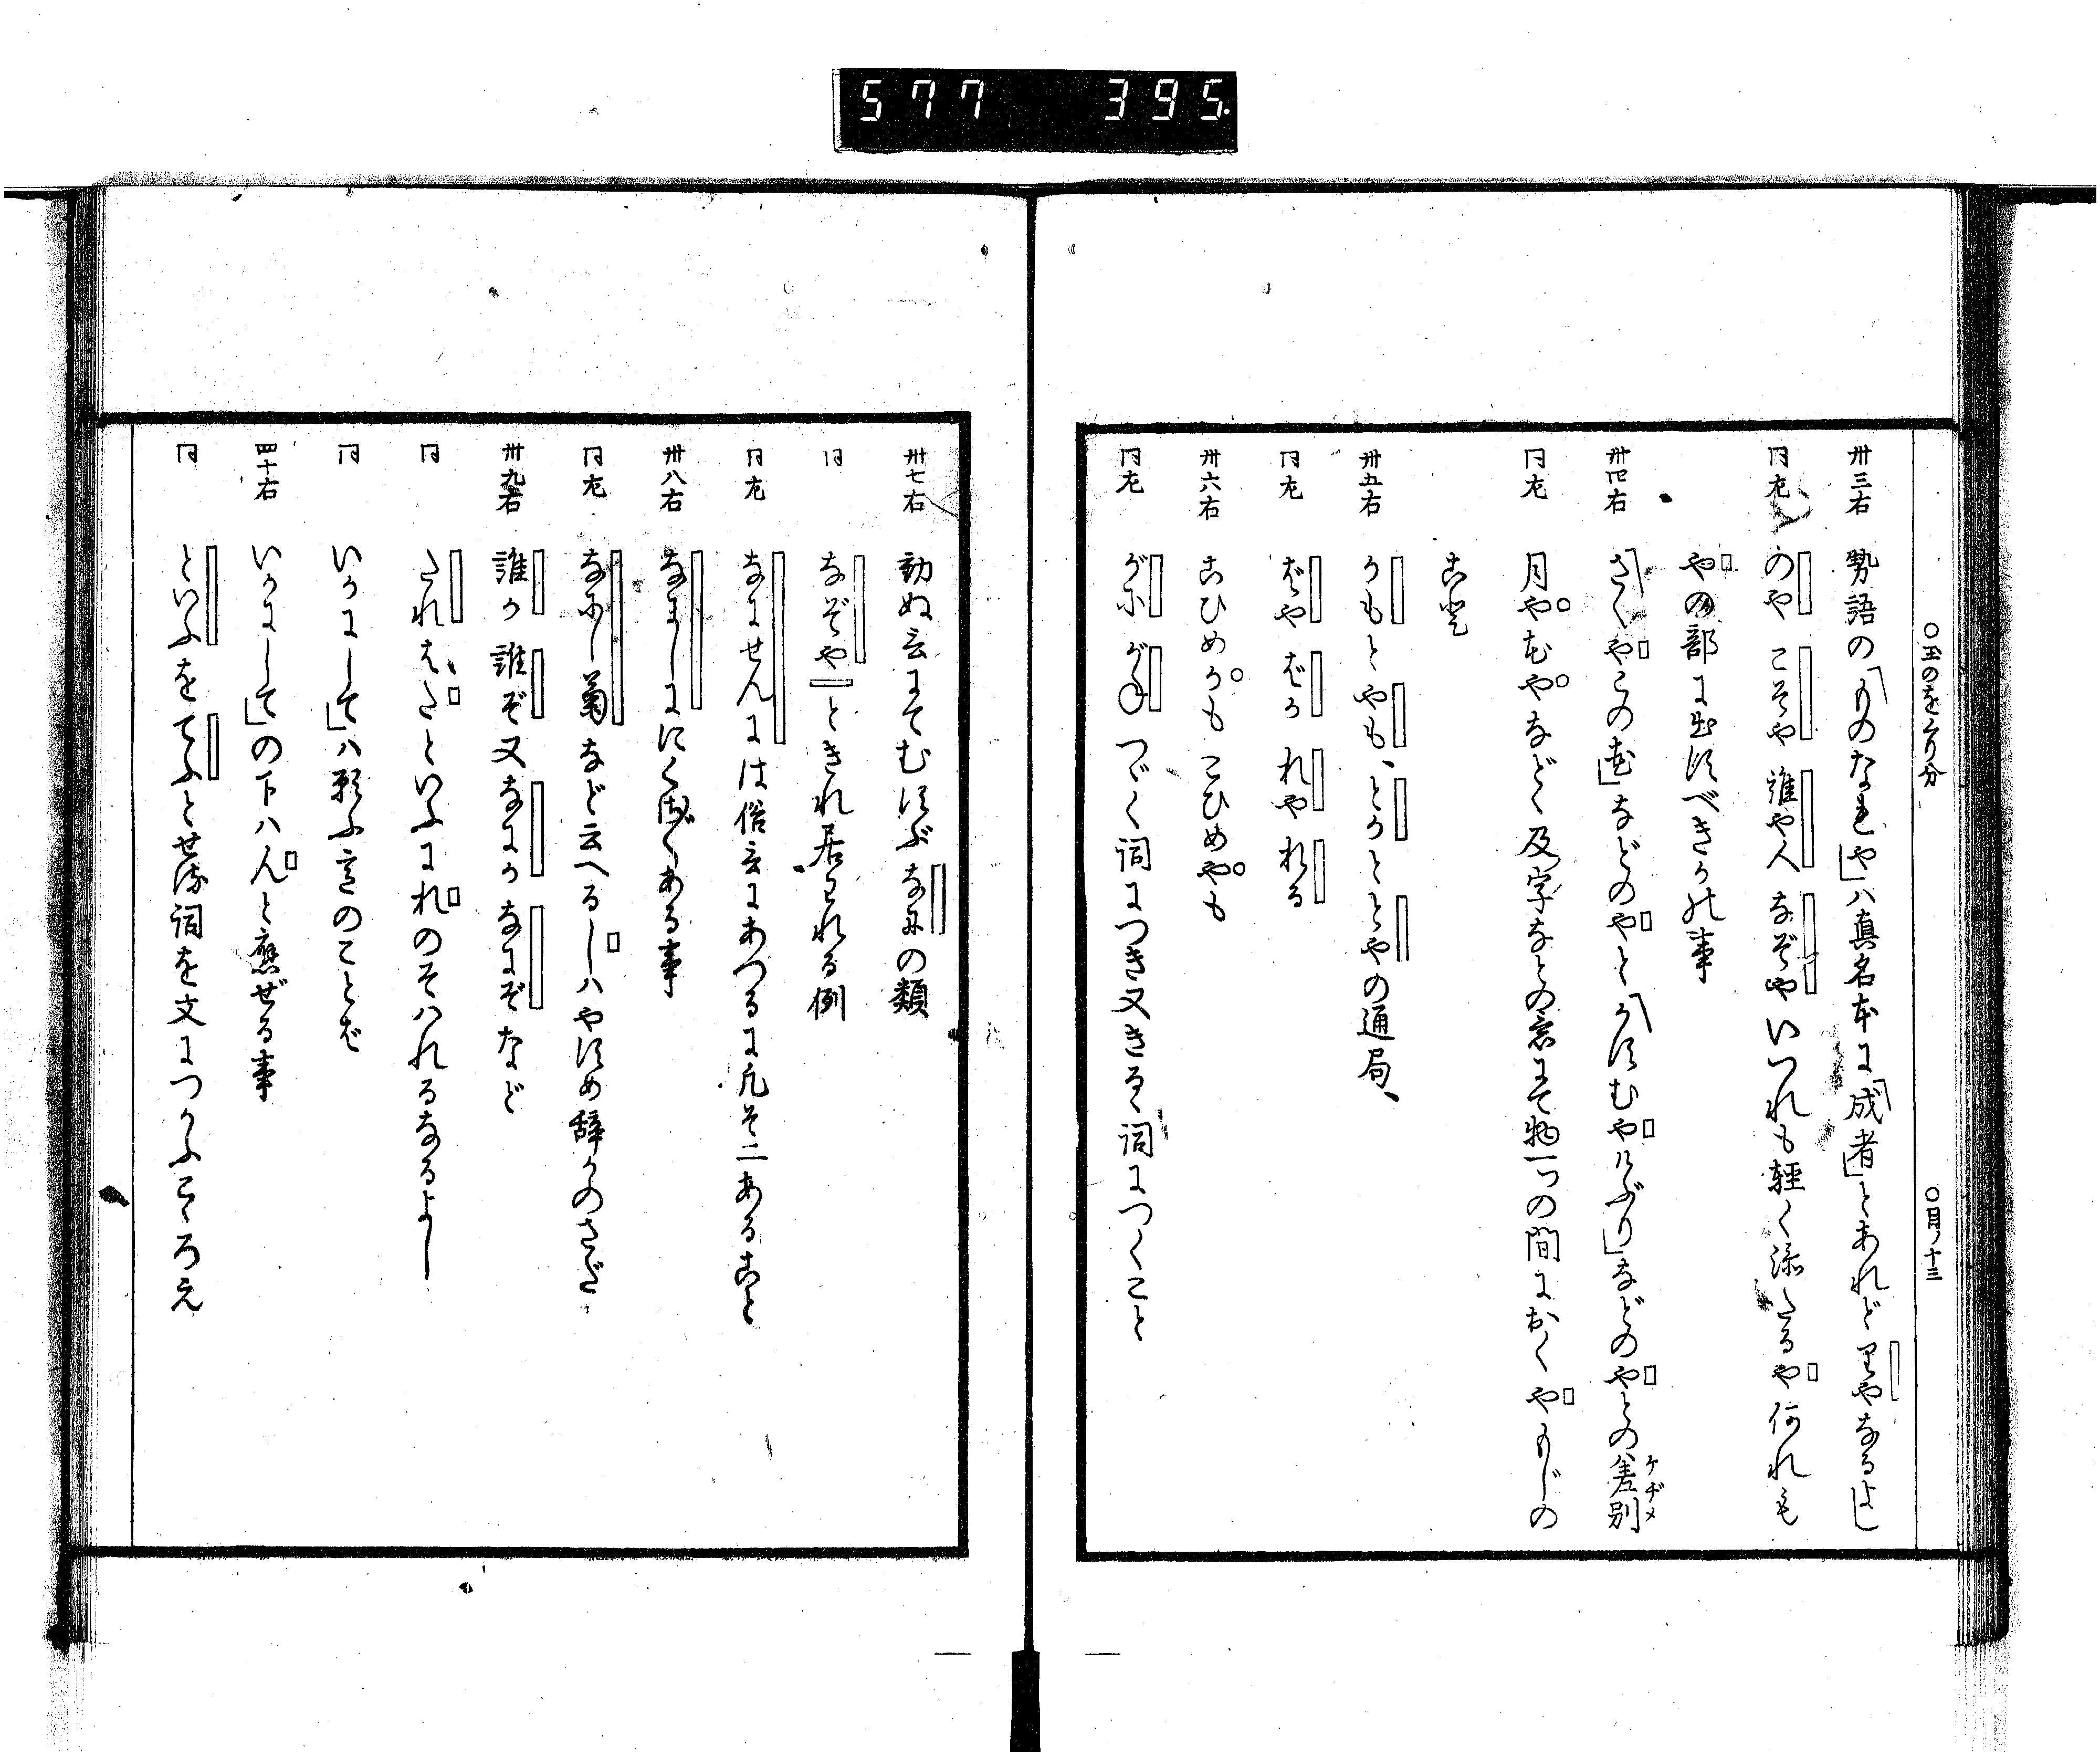 577 395.
○玉のをくり分 ○目ノ十三
卅三右 勢語の「ものなれや」ハ真名本に「成者」とあれど里やなるよし
同左 のや こそや 誰や人 なぞや いつれも軽く添たるや何れも
やの部に出すべきかの事
卅四右 「さくやこの花」などのやと「かすむやけぶり」などのやとの差別ケヂメ
同左 月やむやなどゝ及字などの意にて物二つの間におくやもじの
こと
卅五右 かもとやも、とかととやの通局、
同左 ばや ばか れや れか
卅六右 こひめかも こひめやも
同左 がに がね つゞく詞につき又きるゝ詞につくこと
卅七右 動ぬ言にてむすぶなにの類
同 なぞや―ときれ居たれる例
同左 なにせんには俗言にあつるに凡そ二あること
卅八右 なにしににくさ〴〵ある事
同左 なにし菊など云へるしハやすめ辞かのさだ
卅九右 誰か 誰ぞ 又なにか なにぞ など
同 たれをたといふにれのそハれるなるよし
同 いかにして」ハ願ふ意のことば
四十右 いかにして」の下ハんと應ぜる事
同 といふをてふとせる詞を文につかふこゝろえ